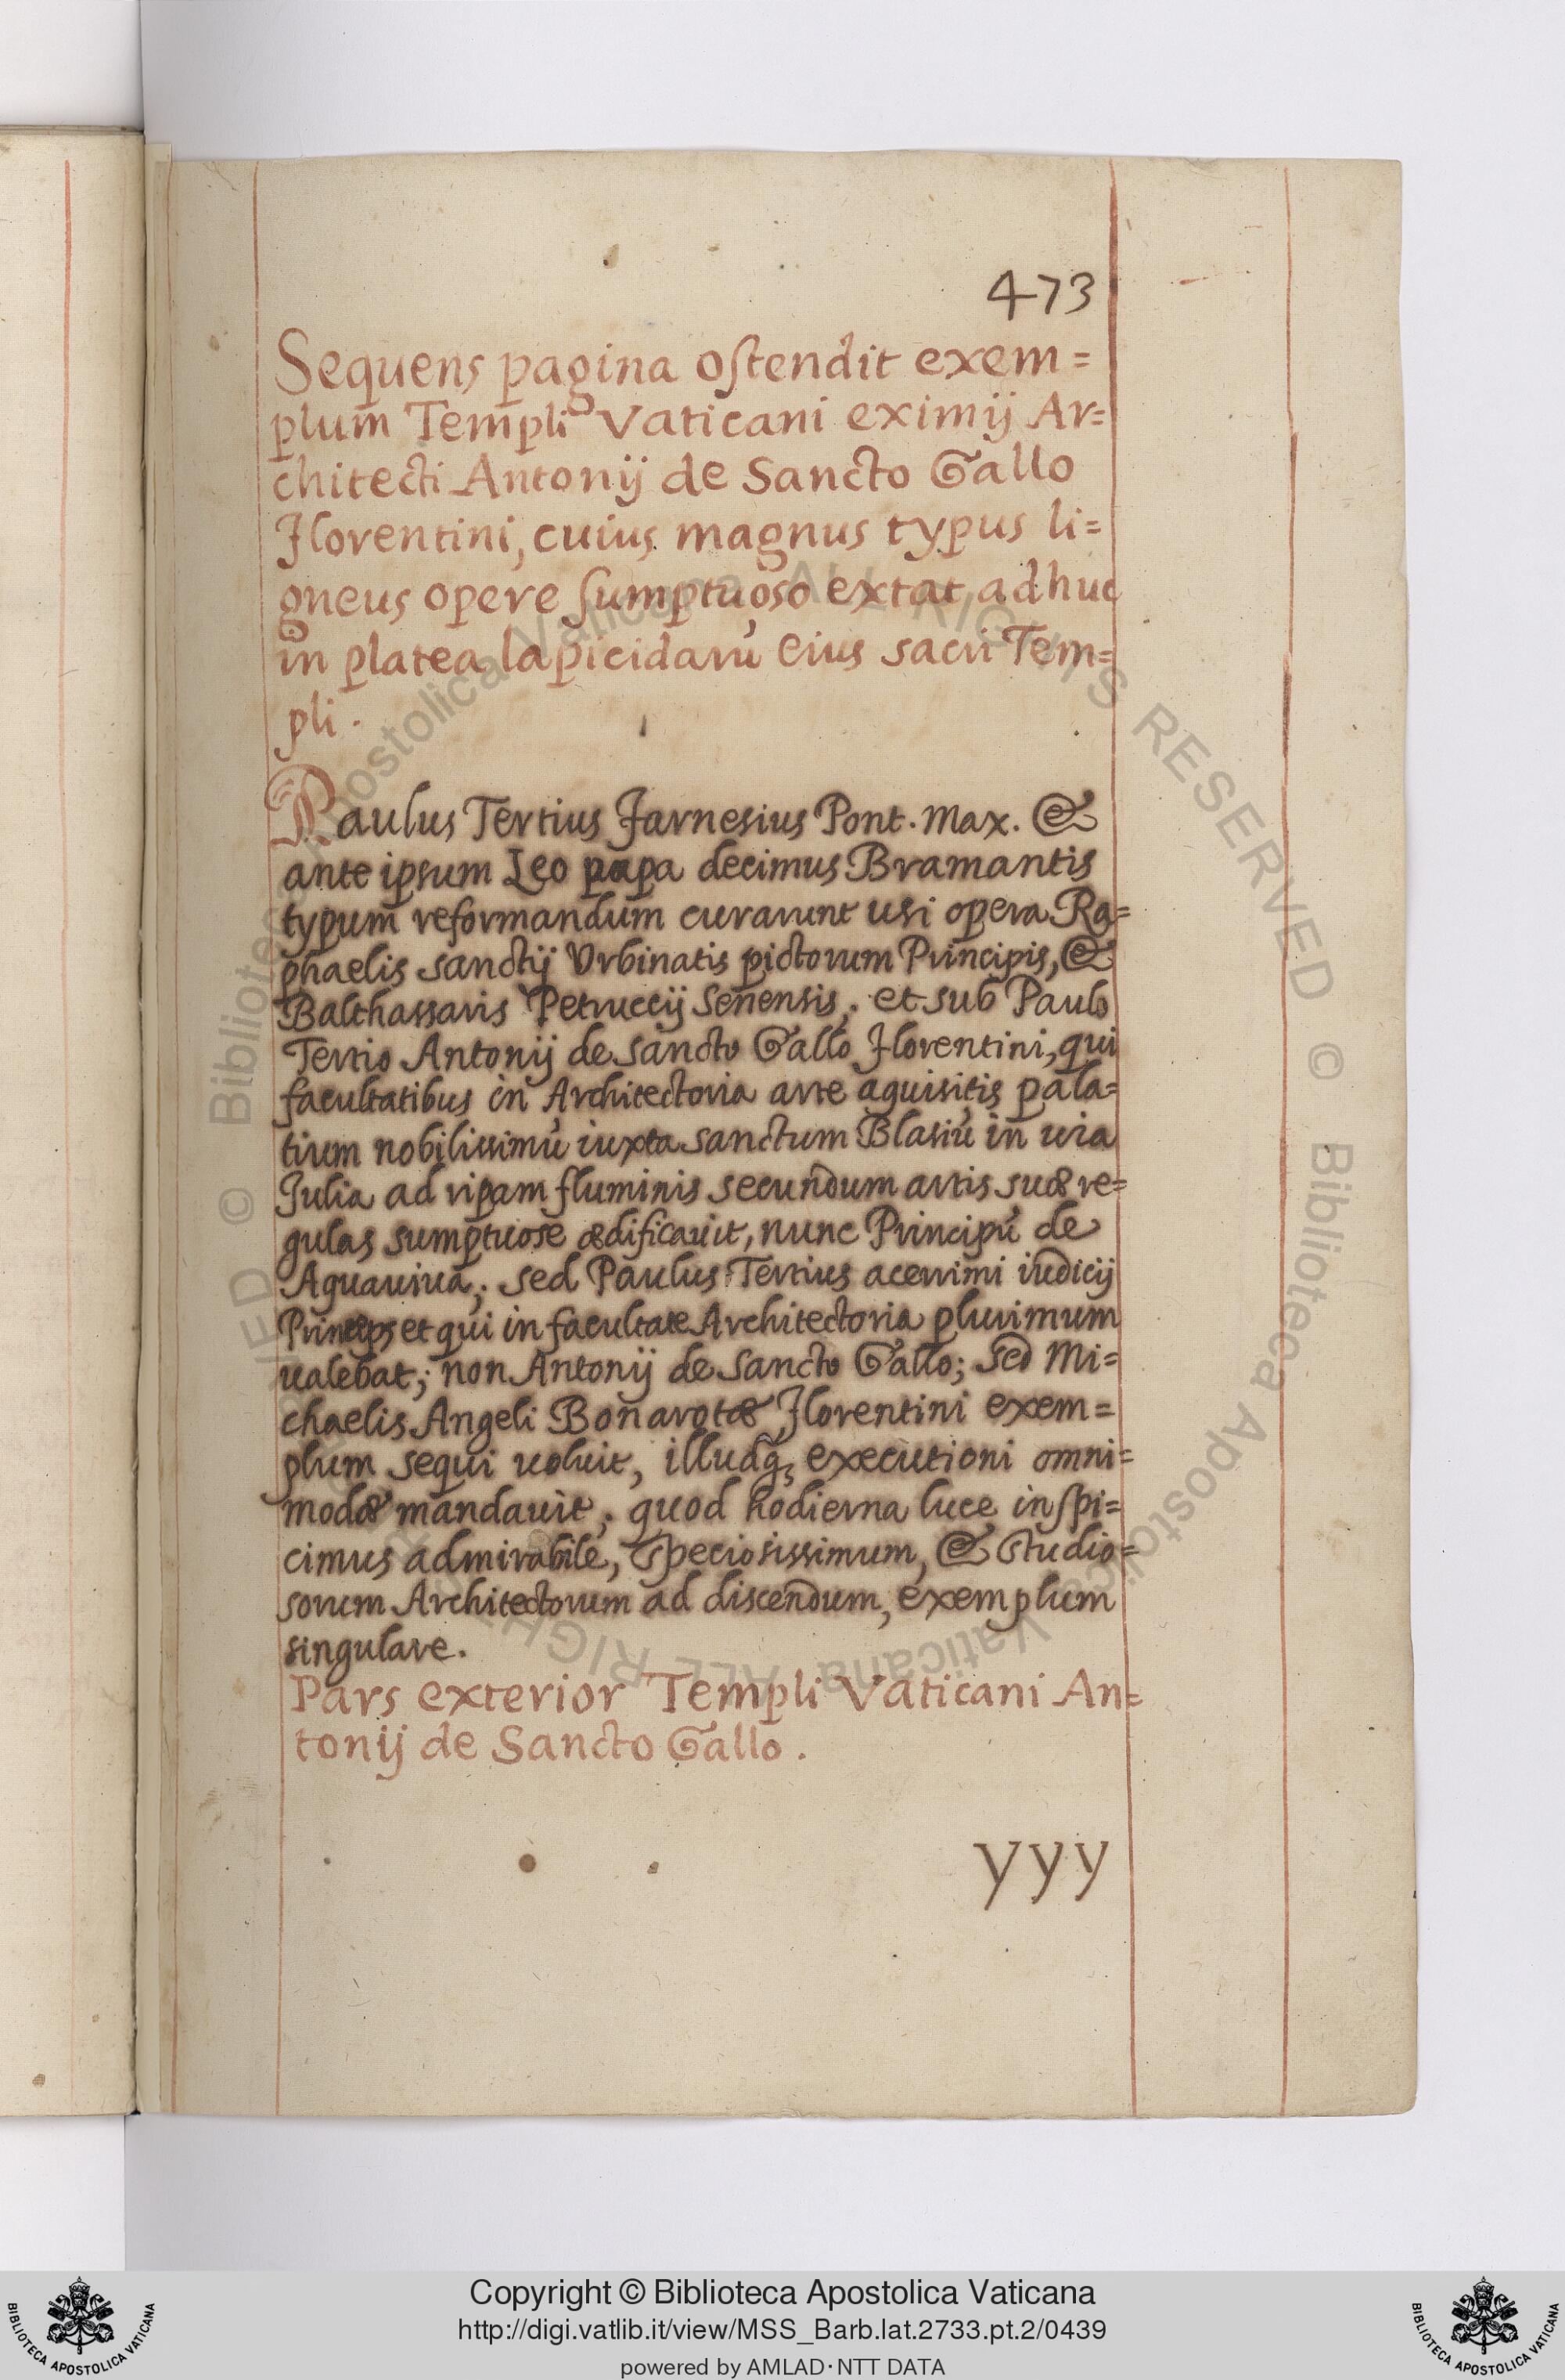 473
Sequens pagina ostendit exem=
plum Templi Vaticani eximij Ar=
chitecti Antonij de Sancto Gallo
Florentini, cuius magnus typus li=
gneus opere sumptuoso extat adhuc
in platea lapicidarū eius sacri Tem=
pli.
Paulus Tertius Farnesius Pont. Max. &
ante ipsum Leo papa decimus Bramantis
typum reformandum curarunt usi opera Ra=
phaelis sanctij Vrbinatis pictorum Principis, &
Balthassaris Petruccij Senensis; et sub Paulo
Tertio Antonij de Sancto Gallo Florentini, qui
facultatibus in Architectoria arte aquisitis pala=
tium nobilissimū iuxta sanctum Blasiū in uia
Julia ad ripam fluminis secundum artis suæ re=
gulas sumptuose ædificauit, nunc Principū de
Aquauiua; sed Paulus Tertius acerrimi iudicij
Princeps et qui in facultate Architectoria plurimum
ualebat; non Antonij de Sancto Gallo; Sed Mi=
chaelis Angeli Bonarotæ Florentini exem=
plum sequi uoluit, illudq; executioni omni=
modæ mandauit; quod hodierna luce inspi=
cimus admirabile, speciosissimum, & studio=
sorum Architectorum ad discendum, exemplum
singulare.
Pars exterior Templi Vaticani An=
tonij de Sancto Gallo.
yyy
© Biblioteca Apostolica Vaticana ALL RIGHTS RESERVED © Biblioteca Apostolica Vaticana ALL RIGHTS RESERVED
Copyright © Biblioteca Apostolica Vaticana
http://digi.vatlib.it/view/MSS_Barb.lat.2733.pt.2/0439
powered by AMLAD·NTT DATA
BIBLIOTECA APOSTOLICA VATICANA
BIBLIOTECA APOSTOLICA VATICANA